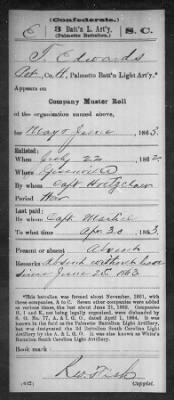 (Confederate.)
E 3 Batt'n L. Art'y. S. C.
(Palmetto Battalion.)
T. Edwards
Pvt, Co. H, Palmetto Batt'n Light Art'y.*
Appears on
Company Muster Roll
of the organization named above,
for May & June, 1863.
Enlisted:
When July 22, 1862.
Where Greenville
By whom Capt.
Period War
Last paid:
By whom Capt.
To what time Apr 30, 1863.
Present or absent Absent
Remarks: Absent without leave
since June 25 1863
*This battalion was formed about November, 1861, with
three companies, A to C. Seven other companies were added
at various times, this last about June 21, 1862. Companies
H, I and K, not being legally organized, were disbanded by
S. O. No. 77, A. & I. G. O., dated April 1, 1864. It appears
in the field as the Palmetto Battalion Light Artillery,
but was designated the 3d Battalion South Carolina Light
Artillery by the A. & I. G. O. It was also known as White's
Battalion South Carolina Light Artillery.
Book mark:
(642)
Copyist.